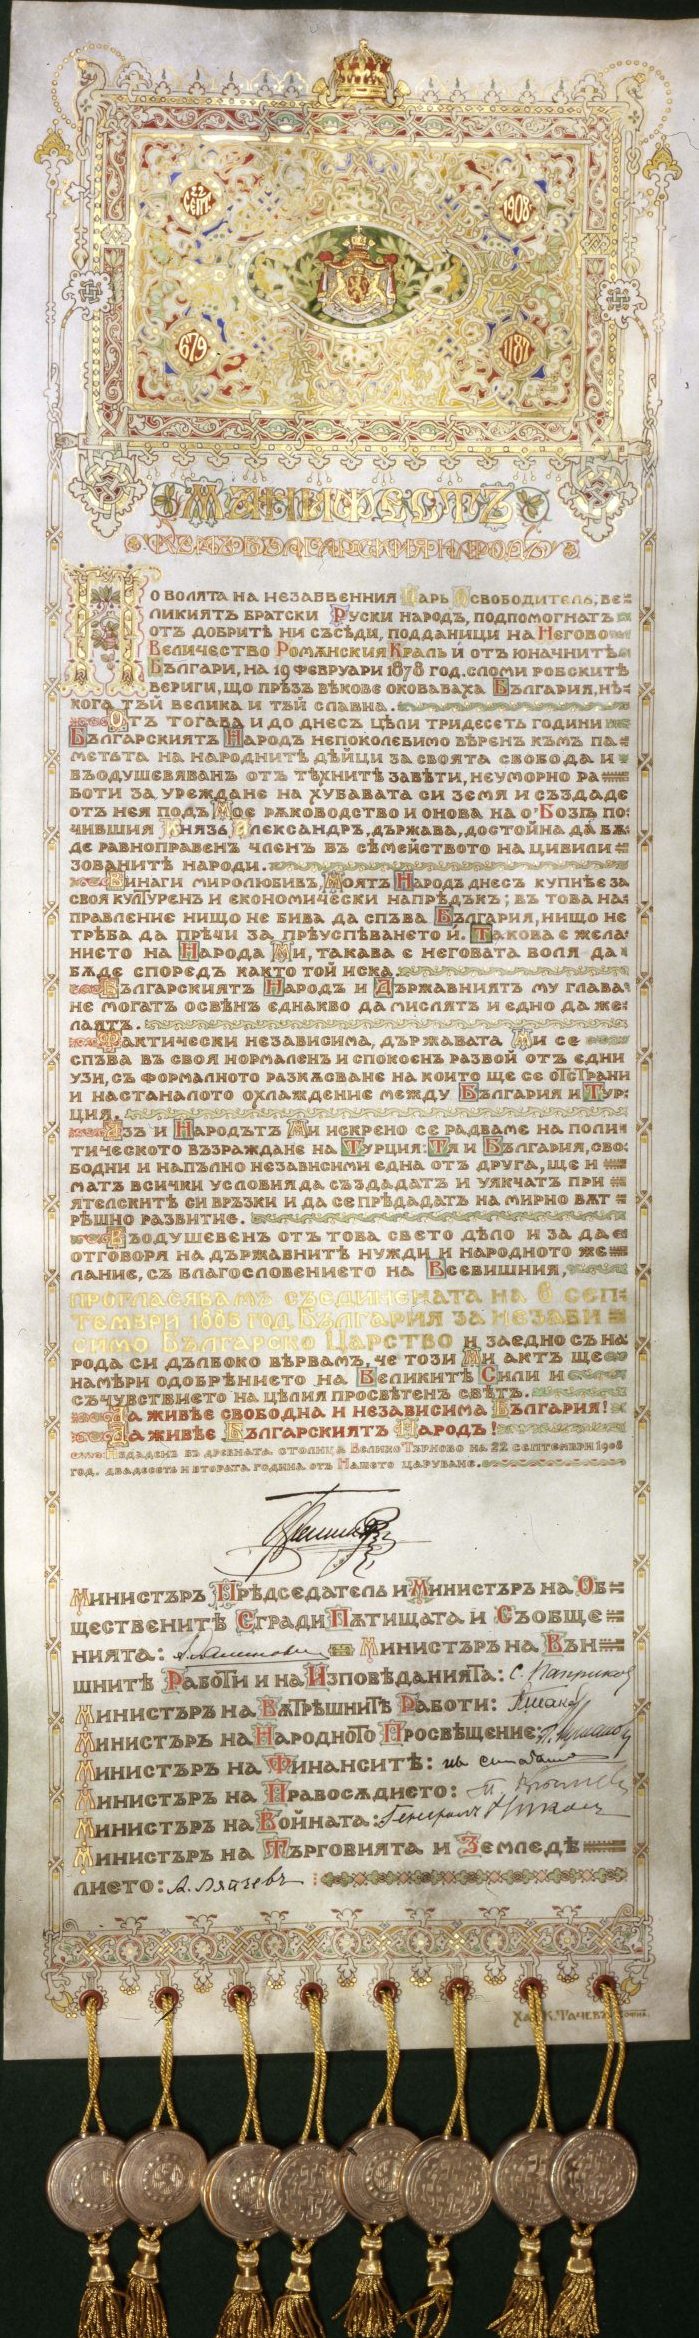 22 СЕПТ. 1908
679 1187
МАНИФЕСТЪ
КЪМЪ БЪЛГАРСКИЯ НАРОДЪ
ПО ВОЛЯТА НА НЕЗАБВЕННИЯ ЦАРЬ ОСВОБОДИТЕЛЬ, ВЕ=
ЛИКИЯТЪ БРАТСКИ РУСКИ НАРОДЪ, ПОДПОМОГНАТЪ
ОТЪ ДОБРИТѢ НИ СЪСѢДИ, ПОДДАНИЦИ НА НЕГОВО
ВЕЛИЧЕСТВО РОМѪНСКИЯ КРАЛЬ И ОТЪ ЮНАЧНИТѢ
БЪЛГАРИ, НА 19 ФЕВРУАРИ 1878 ГОД. СЛОМИ РОБСКИТѢ
ВЕРИГИ, ЩО ПРѢЗЪ ВѢКОВЕ ОКОВАВАХА БЪЛГАРИЯ, НѢ=
КОГА ТЪЙ ВЕЛИКА И ТЪЙ СЛАВНА.
ОТЪ ТОГАВА И ДО ДНЕСЪ ЦѢЛИ ТРИДЕСЕТЬ ГОДИНИ
БЪЛГАРСКИЯТЪ НАРОДЪ НЕПОКОЛЕБИМО ВѢРЕНЪ КЪМЪ ПА=
МЕТЬТА НА НАРОДНИТѢ ДѢЙЦИ ЗА СВОЯТА СВОБОДА И
ВЪОДУШЕВЯВАНЪ ОТЪ ТѢХНИТѢ ЗАВѢТИ, НЕУМОРНО РА=
БОТИ ЗА УРЕЖДАНЕ НА ХУБАВАТА СИ ЗЕМЯ И СЪЗДАДЕ
ОТЪ НЕЯ ПОДЪ МОЕ РѪКОВОДСТВО И ОНОВА НА О'БОЗѢ ПО=
ЧИВШИЯ КНЯЗЬ АЛЕКСАНДРЪ, ДЪРЖАВА, ДОСТОЙНА ДА БѪ=
ДЕ РАВНОПРАВЕНЪ ЧЛЕНЪ ВЪ СѢМЕЙСТВОТО НА ЦИВИЛИ=
ЗОВАНИТѢ НАРОДИ.
ВИНАГИ МИРОЛЮБИВЪ, МОЯТЪ НАРОДЪ ДНЕСЪ КУПНѢЕ ЗА
СВОЯ КУЛТУРЕНЪ И ЕКОНОМИЧЕСКИ НАПРѢДЪКЪ; ВЪ ТОВА НА=
ПРАВЛЕНИЕ НИЩО НЕ БИВА ДА СПЪВА БЪЛГАРИЯ, НИЩО НЕ
ТРѢБА ДА ПРѢЧИ ЗА ПРѢУСПѢВАНЕТО Й. ТАКОВА Е ЖЕЛА=
НИЕТО НА НАРОДА МИ, ТАКАВА Е НЕГОВАТА ВОЛЯ ДА
БѪДЕ СПОРЕДЪ КАКТО ТОЙ ИСКА.
БЪЛГАРСКИЯТЪ НАРОДЪ И ДЪРЖАВНИЯТЪ МУ ГЛАВА
НЕ МОГАТЪ ОСВѢНЪ ЕДНАКВО ДА МИСЛЯТЪ И ЕДНО ДА ЖЕ=
ЛАЯТЪ.
ФАКТИЧЕСКИ НЕЗАВИСИМА, ДЪРЖАВАТА МИ СЕ
СПЪВА ВЪ СВОЯ НОРМАЛЕНЪ И СПОКОЕНЪ РАЗВОЙ ОТЪ ЕДНИ
УЗИ, СЪ ФОРМАЛНОТО РАЗКѪСВАНЕ НА КОИТО ЩЕ СЕ ОТСТРАНИ
И НАСТАНАЛОТО ОХЛАЖДЕНИЕ МЕЖДУ БЪЛГАРИЯ И ТУР=
ЦИЯ.
АЗЪ И НАРОДЪТЪ МИ ИСКРЕНО СЕ РАДВАМЕ НА ПОЛИ=
ТИЧЕСКОТО ВЪЗРАЖДАНЕ НА ТУРЦИЯ: ТЯ И БЪЛГАРИЯ, СВО=
БОДНИ И НАПЪЛНО НЕЗАВИСИМИ ЕДНА ОТЪ ДРУГА, ЩЕ И=
МАТЪ ВСИЧКИ УСЛОВИЯ ДА СЪЗДАДАТЪ И УЯКЧАТЪ ПРИ=
ЯТЕЛСКИТѢ СИ ВРЪЗКИ И ДА СЕ ПРѢДАДАТЪ НА МИРНО ВѪТ=
РѢШНО РАЗВИТИЕ.
ВЪОДУШЕВЕНЪ ОТЪ ТОВА СВЕТО ДѢЛО И ЗА ДА
ОТГОВОРЯ НА ДЪРЖАВНИТѢ НУЖДИ И НАРОДНОТО ЖЕ=
ЛАНИЕ, СЪ БЛАГОСЛОВЕНИЕТО НА ВСЕВИШНИЯ,
ПРОГЛАСЯВАМЪ СЪЕДИНЕНАТА НА 6 СЕП=
ТЕМВРИ 1885 ГОД. БЪЛГАРИЯ ЗА НЕЗАВИ=
СИМО БЪЛГАРСКО ЦАРСТВО И ЗАЕДНО СЪ НА=
РОДА СИ ДЪЛБОКО ВѢРВАМЪ, ЧЕ ТОЗИ МИ АКТЪ ЩЕ
НАМѢРИ ОДОБРѢНИЕТО НА ВЕЛИКИТѢ СИЛИ И
СЪЧУВСТВИЕТО НА ЦѢЛИЯ ПРОСВѢТЕНЪ СВѢТЪ.
ДА ЖИВѢЕ СВОБОДНА И НЕЗАВИСИМА БЪЛГАРИЯ!
ДА ЖИВѢЕ БЪЛГАРСКИЯТЪ НАРОДЪ!
ИЗДАДЕНЪ ВЪ ДРЕВНАТА СТОЛИЦА ВЕЛИКО ТЪРНОВО НА 22 СЕПТЕМВРИ 1908
ГОД. ДВАДЕСЕТЬ И ВТОРАТА ГОДИНА ОТЪ НАШЕТО ЦАРУВАНЕ.
МИНИСТЪРЪ ПРѢДСЕДАТЕЛЬ И МИНИСТЪРЪ НА ОБ=
ЩЕСТВЕНИТѢ СГРАДИ ПѪТИЩАТА И СЪОБЩЕ=
НИЯТА: А. Малиновъ МИНИСТЪРЪ НА ВЪН=
ШНИТѢ РАБОТИ И НА ИЗПОВѢДАНИЯТА: С. Паприковъ
МИНИСТЪРЪ НА ВѪТРѢШНИТѢ РАБОТИ:
МИНИСТЪРЪ НА НАРОДНОТО ПРОСВѢЩЕНИЕ:
МИНИСТЪРЪ НА ФИНАНСИТѢ:
МИНИСТЪРЪ НА ПРАВОСѪДИЕТО:
МИНИСТЪРЪ НА ВОЙНАТА: Генералъ
МИНИСТЪРЪ НА ТЪРГОВИЯТА И ЗЕМЛЕДѢ=
ЛИЕТО: А. Ляпчевъ
ХАР. К. ТАЧЕВЪ СОФИЯ.